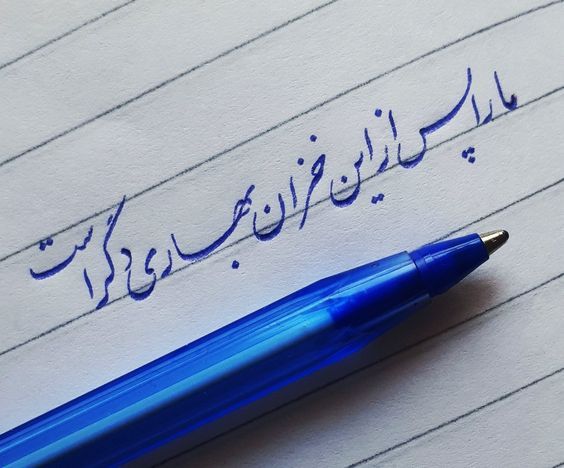 ما را پس از این خزان بهاری دگر است